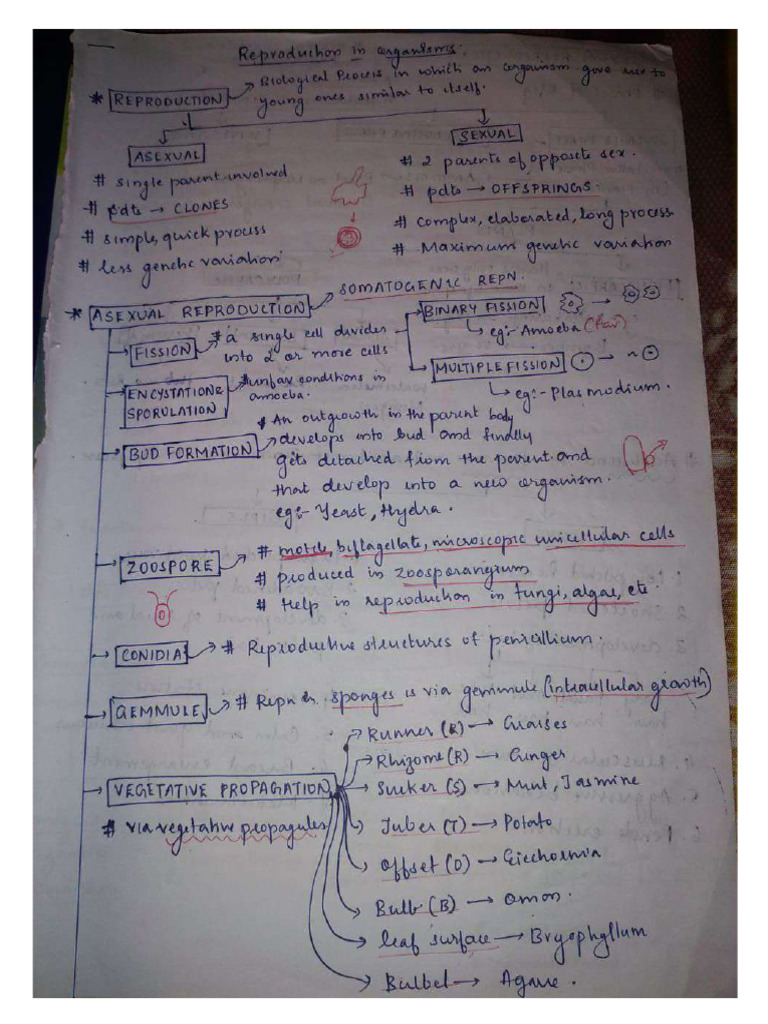 Reproduction in organisms.
* REPRODUCTION → Biological Process in which an organism gave rise to
young ones similar to itself.
ASEXUAL
# single parent involved
# pdts → CLONES
# simple, quick process
# less genetic variation
SEXUAL
# 2 parents of opposite sex.
# pdts → OFFSPRINGS
# complex, elaborated, long process
# Maximum genetic variation
* ASEXUAL REPRODUCTION → SOMATOGENIC REPN.
FISSION → # a single cell divides
into 2 or more cells
BINARY FISSION
eg:- Amoeba (fav)
MULTIPLE FISSION
eg:- Plasmodium.
ENCYSTATION &
SPORULATION
# unfav conditions in
amoeba.
BUD FORMATION → # An outgrowth in the parent body
develops into bud and finally
gets detached from the parent and
that develop into a new organism.
eg:- Yeast, Hydra.
ZOOSPORE → # motile, biflagellate, microscopic unicellular cells
# produced in zoosporangium
# Help in reproduction in fungi, algae, etc
CONIDIA → # Reproductive structures of penicillium.
GEMMULE → # Repn in sponges is via gemmule (intracellular growth)
VEGETATIVE PROPAGATION
# via vegetative propagules
Runner (R) → Grasses
Rhizome (R) → Ginger
Sucker (S) → Mint, Jasmine
Tuber (T) → Potato
Offset (O) → Eichornia
Bulb (B) → onion.
leaf surface → Bryophyllum
Bulbel → Agave.